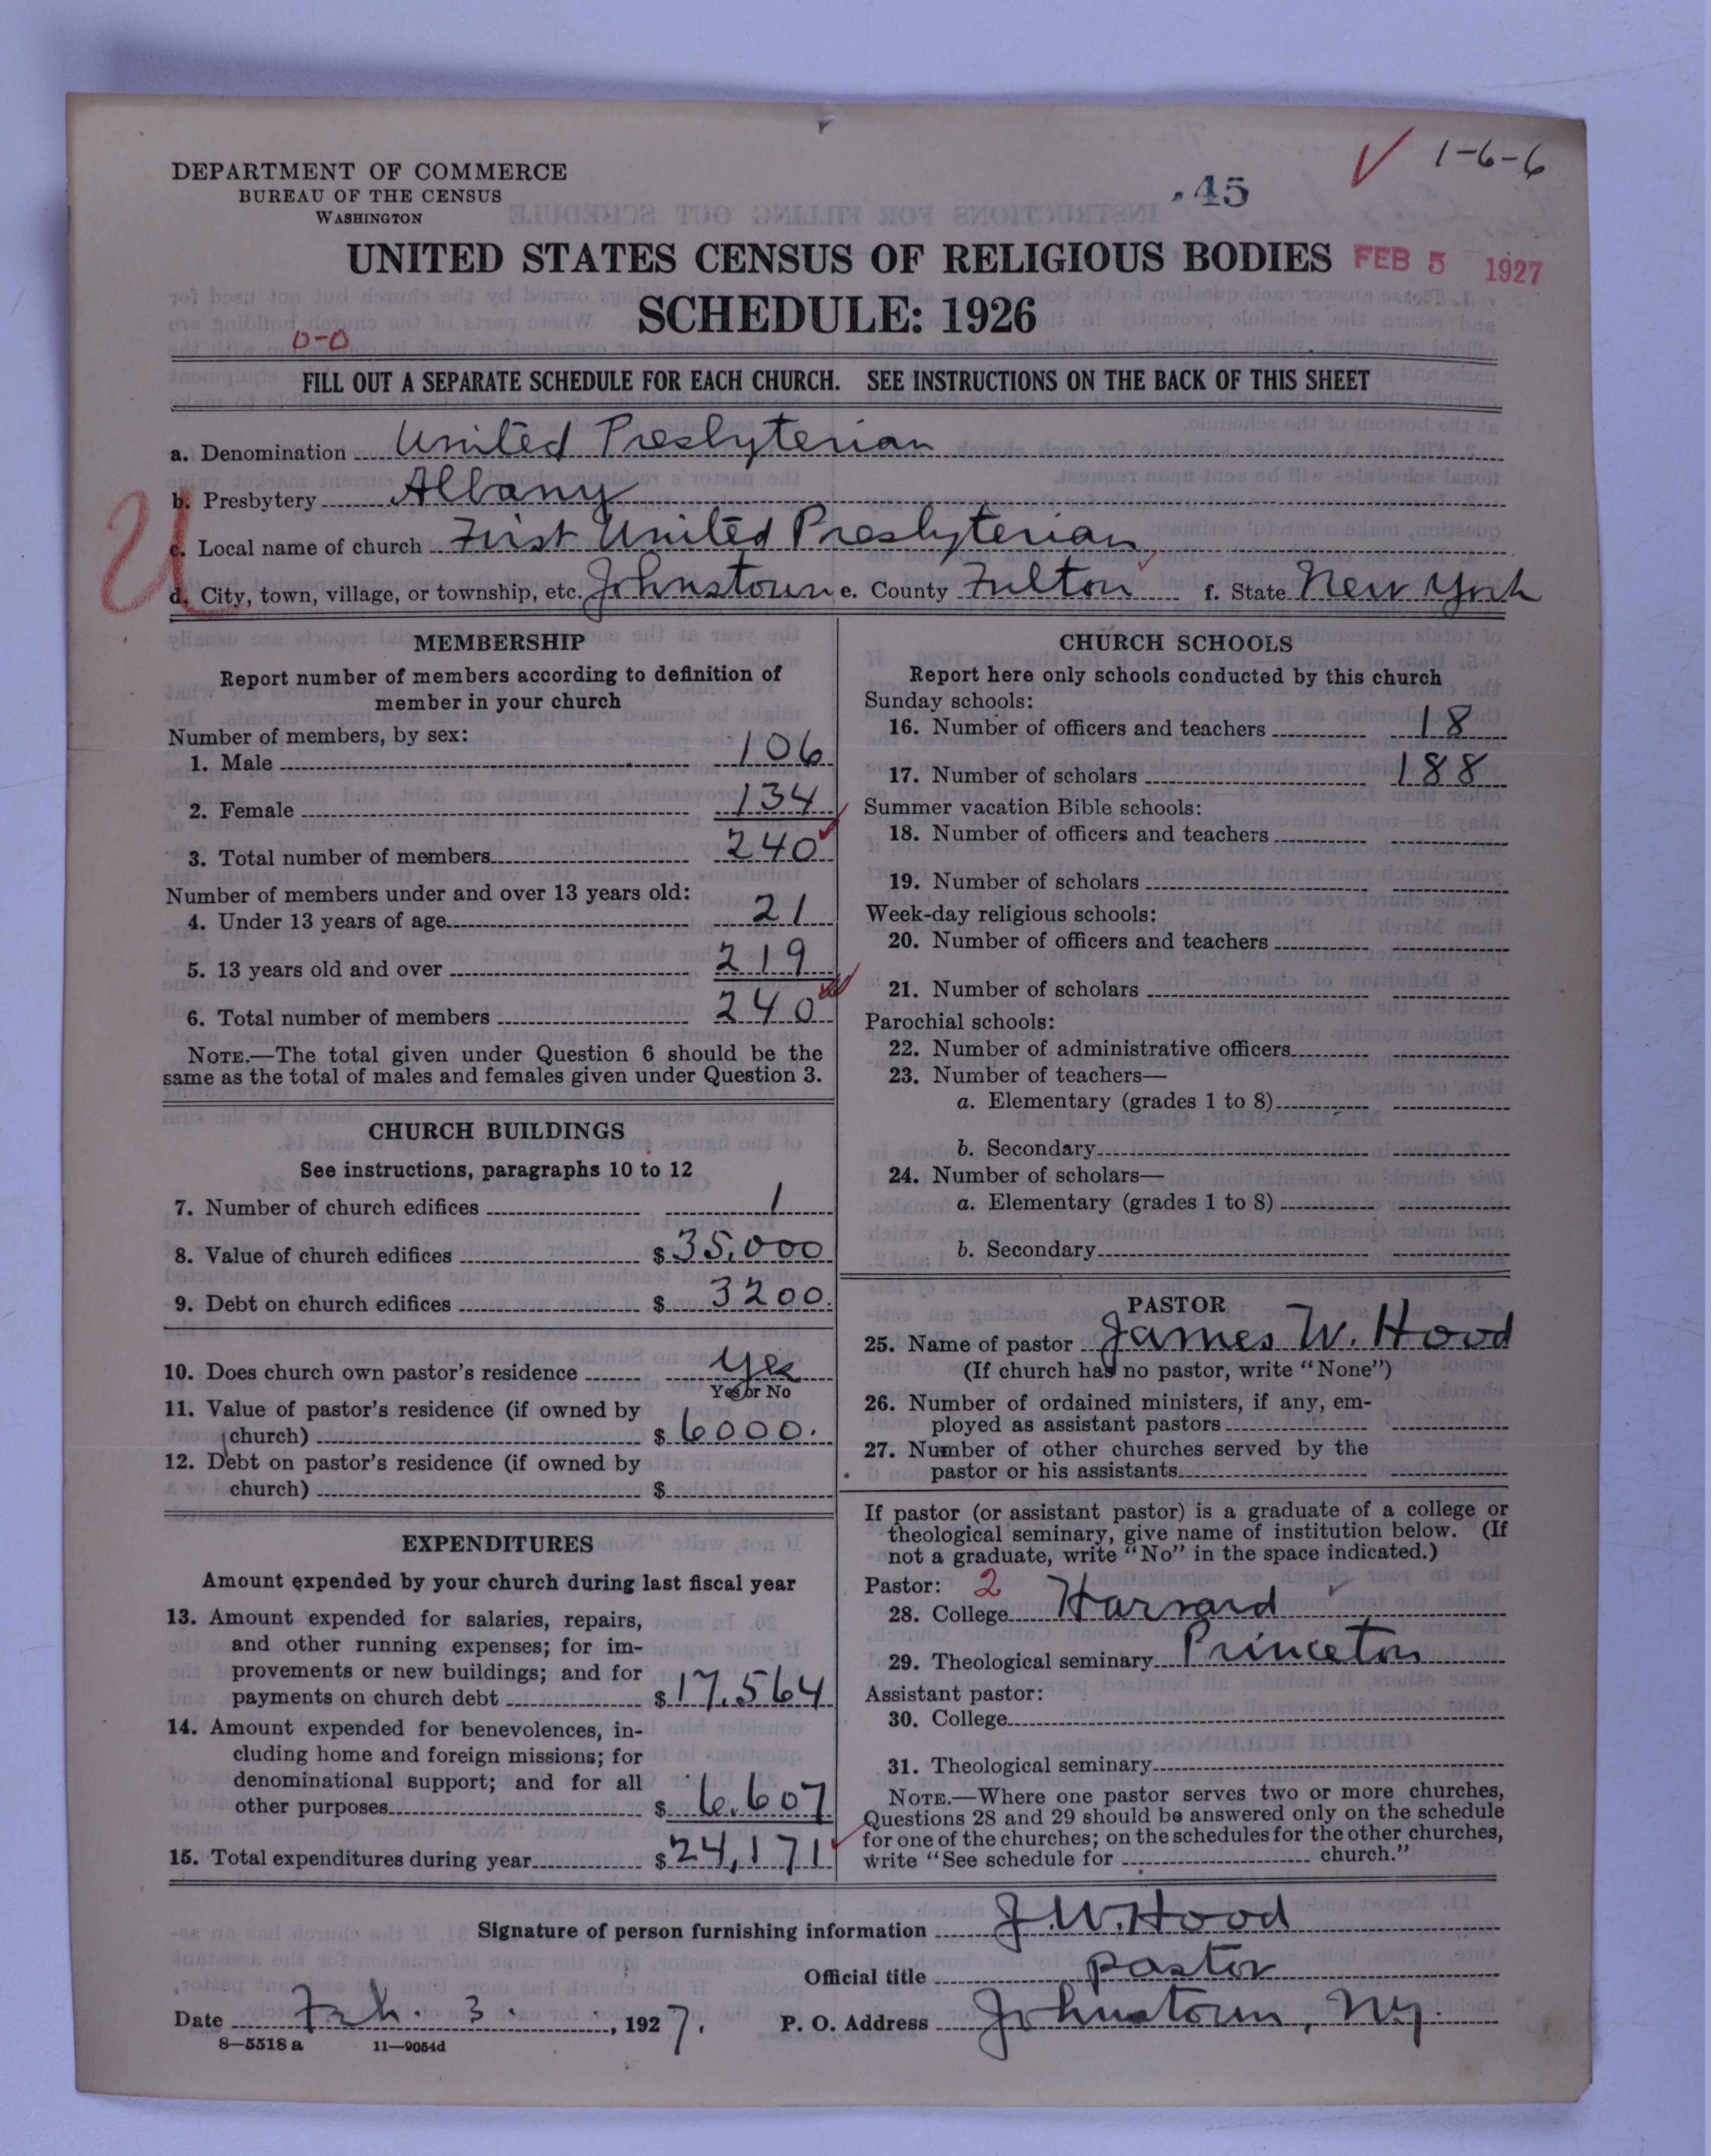 DEPARTMENT OF COMMERCE
BUREAU OF THE CENSUS
WASHINGTON
.45
✓ 1-6-6
UNITED STATES CENSUS OF RELIGIOUS BODIES
FEB 5 1927
SCHEDULE: 1926
0-0
FILL OUT A SEPARATE SCHEDULE FOR EACH CHURCH. SEE INSTRUCTIONS ON THE BACK OF THIS SHEET
a. Denomination United Presbyterian
b. Presbytery Albany
U
c. Local name of church First United Presbyterian
d. City, town, village, or township, etc. Johnstown e. County Fulton f. State New York
MEMBERSHIP
Report number of members according to definition of
member in your church
Number of members, by sex:
1. Male 106
2. Female 134
3. Total number of members 240
Number of members under and over 13 years old:
4. Under 13 years of age 21
5. 13 years old and over 219
6. Total number of members 240
NOTE.—The total given under Question 6 should be the
same as the total of males and females given under Question 3.
CHURCH BUILDINGS
See instructions, paragraphs 10 to 12
7. Number of church edifices 1
8. Value of church edifices $ 35,000
9. Debt on church edifices $ 3200.
10. Does church own pastor's residence yes
Yes or No
11. Value of pastor's residence (if owned by
church) $ 6000.
12. Debt on pastor's residence (if owned by
church) $
EXPENDITURES
Amount expended by your church during last fiscal year
13. Amount expended for salaries, repairs,
and other running expenses; for im-
provements or new buildings; and for
payments on church debt $ 17,564
14. Amount expended for benevolences, in-
cluding home and foreign missions; for
denominational support; and for all
other purposes $ 6,607
15. Total expenditures during year $ 24,171
CHURCH SCHOOLS
Report here only schools conducted by this church
Sunday schools:
16. Number of officers and teachers 18
17. Number of scholars 188
Summer vacation Bible schools:
18. Number of officers and teachers
19. Number of scholars
Week-day religious schools:
20. Number of officers and teachers
21. Number of scholars
Parochial schools:
22. Number of administrative officers
23. Number of teachers—
a. Elementary (grades 1 to 8)
b. Secondary
24. Number of scholars—
a. Elementary (grades 1 to 8)
b. Secondary
PASTOR
25. Name of pastor James W. Hood
(If church has no pastor, write "None")
26. Number of ordained ministers, if any, em-
ployed as assistant pastors
27. Number of other churches served by the
pastor or his assistants
If pastor (or assistant pastor) is a graduate of a college or
theological seminary, give name of institution below. (If
not a graduate, write "No" in the space indicated.)
Pastor: 2
28. College Harvard
29. Theological seminary Princeton
Assistant pastor:
30. College
31. Theological seminary
NOTE.—Where one pastor serves two or more churches,
Questions 28 and 29 should be answered only on the schedule
for one of the churches; on the schedules for the other churches,
write "See schedule for church."
Signature of person furnishing information J.W. Hood
Official title pastor
Date Feb. 3. , 1927. P. O. Address Johnstown, NY
8—5518 a 11—9054d